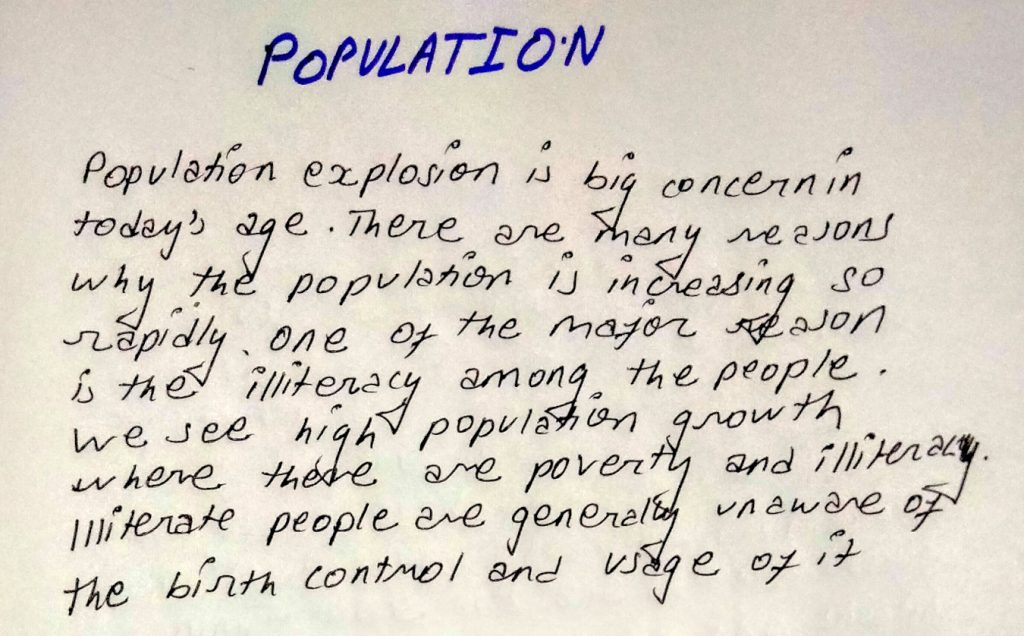 POPULATION
Population explosion is big concern in
today's age. There are many reasons
why the population is increasing so
rapidly. one of the major reason
is the illiteracy among the people.
we see high population growth
where there are poverty and illiteracy.
Illiterate people are generally unaware of
the birth control and usage of it